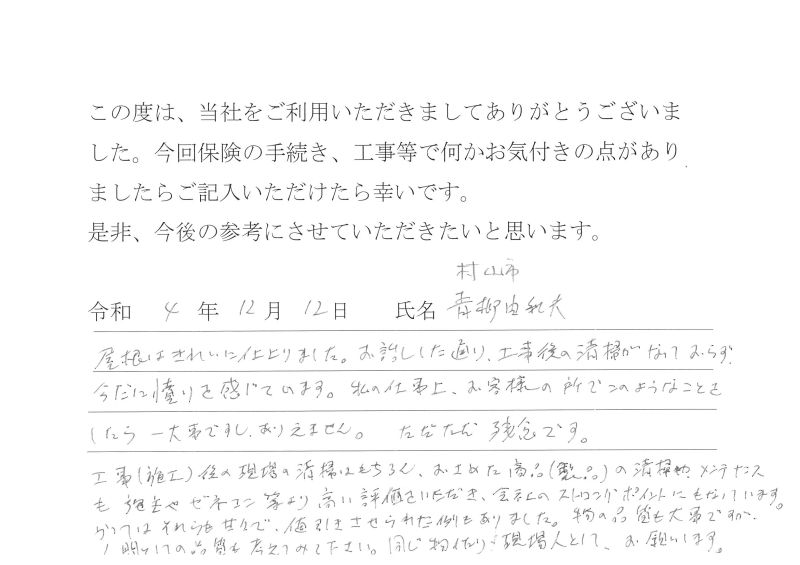 この度は、当社をご利用いただきましてありがとうございま
した。今回保険の手続き、工事等で何かお気付きの点があり
ましたらご記入いただけたら幸いです。
是非、今後の参考にさせていただきたいと思います。
村山市
令和 4 年 12 月 12 日 氏名 青柳由利夫
屋根はきれいに仕上りました。お話しした通り、工事後の清掃がなっておらず、
今だに憤りを感じています。私の仕事上、お客様の所でこのようなことを
したら一大事ですし、ありえません。 ただただ 残念です。
工事(施工)後の現場の清掃はもちろん、おさめた商品(製品)の清掃やメンテナンス
も 施主やゼネコン 等より 高い評価をいただき、会社のストロングポイントにもなっています。
かつてはそれらも甘々で、値引きさせられた例もありました。物の品質も大事ですが、
人間としての品質も考えてみて下さい。同じ物作り・現場人として、お願いします。